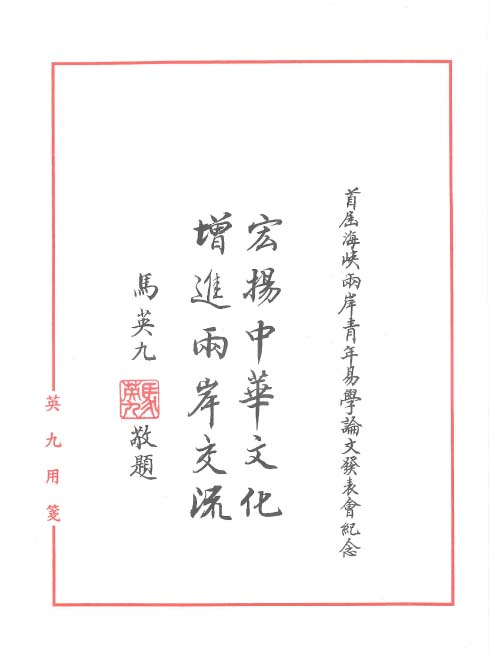 首屆海峽兩岸青年易學論文發表會紀念
宏揚中華文化
增進兩岸交流
馬英九
馬英九
敬題
英九用箋